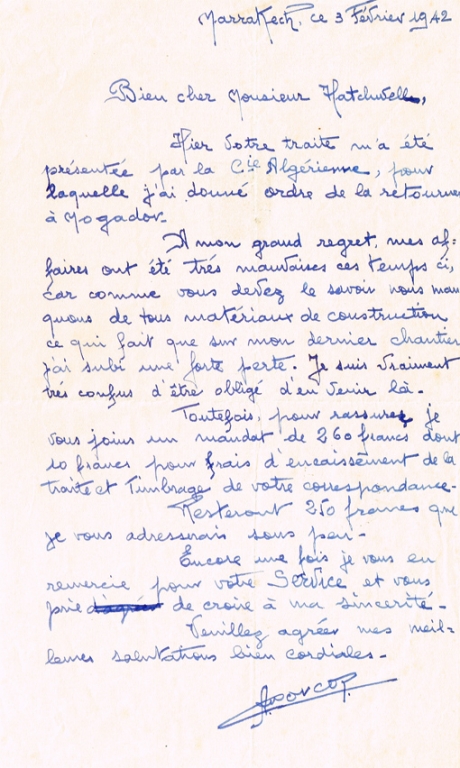 Marrakech, ce 3 Février 1942
Bien cher Monsieur Hatchwell,
Hier votre traite m'a été
présentée par la Cie Algérienne, pour
laquelle j'ai donné ordre de la retourner
à Mogador.
A mon grand regret, mes af-
faires ont été trés mauvaises ces temps ci,
car comme vous devez le savoir nous man
quons de tous matériaux de construction
ce qui fait que sur mon dernier chantier
j'ai subi une forte perte. Je suis vraiment
trés confus d'être obligé d'en venir là.
Toutefois, pour rassurer je
vous joins un mandat de 260 francs dont
10 francs pour frais d'encaissement de la
traite et Timbrages de votre correspondance.
Resteront 250 francs que
je vous adresserais sous peu.
Encore une fois je vous en
remercie pour votre Service et vous
prie de croire à ma sincerité.
Veuillez agréer mes meil-
leures salutations bien cordiales.